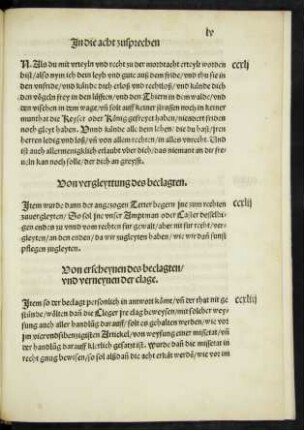 lv
In die acht zusprechen
N. Als du mit vrteyln vnd recht zu der mordtacht erteylt worden ccxlj
bist / also nym ich dein leyb vnd gute auß dem fride / vnd thu sie in
den vnfride / vnd künde dich erloß vnd rechtloß / vnd künde dich
den vögeln frey in den lüfften / vnd den Thiern in dem walde / vnd
den vischen in dem wage / vñ solt auff keiner strassen noch in keiner
muntat die Keyser oder König gefreyet haben / niendert friden
noch gleyt haben. Vnnd künde alle dein lehen / die du hast / jren
herren ledig vnd loß / vñ von allen rechten / in alles vnrecht. Vnd
ist auch allermenigklich erlaubt vber dich / das niemant an dir fre-
ueln kan noch solle / der dich an greyfft.
Von vergleyttung des beclagten.
Item wurde dann der angezogen Tetter begern jne zum rechten ccxlij
zuuergleyten / So sol jne vnser Amptman oder Castner desselbi-
gen enden zu vnd vom rechten fur gewalt / aber nit fur recht / ver-
gleyten / an den enden / da wir zugleyten haben / wie wir dañ sunst
pflegen zugleyten.
Von erscheynen des beclagten /
vnd verneynen der clage.
Item so der beclagt personlich in antwort käme / vñ der that nit ge ccxliij
stünde / wölten dañ die Cleger jre clag beweysen / mit solcher wey
sung auch aller handlũg dar auff / solt es gehalten werden / wie vor
jm vierundsibenzigsten Artickel / von weysung einer missetat / vñ
der handlũg dar auff klerlich gesatzt ist. Wurde dañ die missetat in
recht gnug bewisen / so sol alßdañ die acht erkãt werdẽ / wie vor im